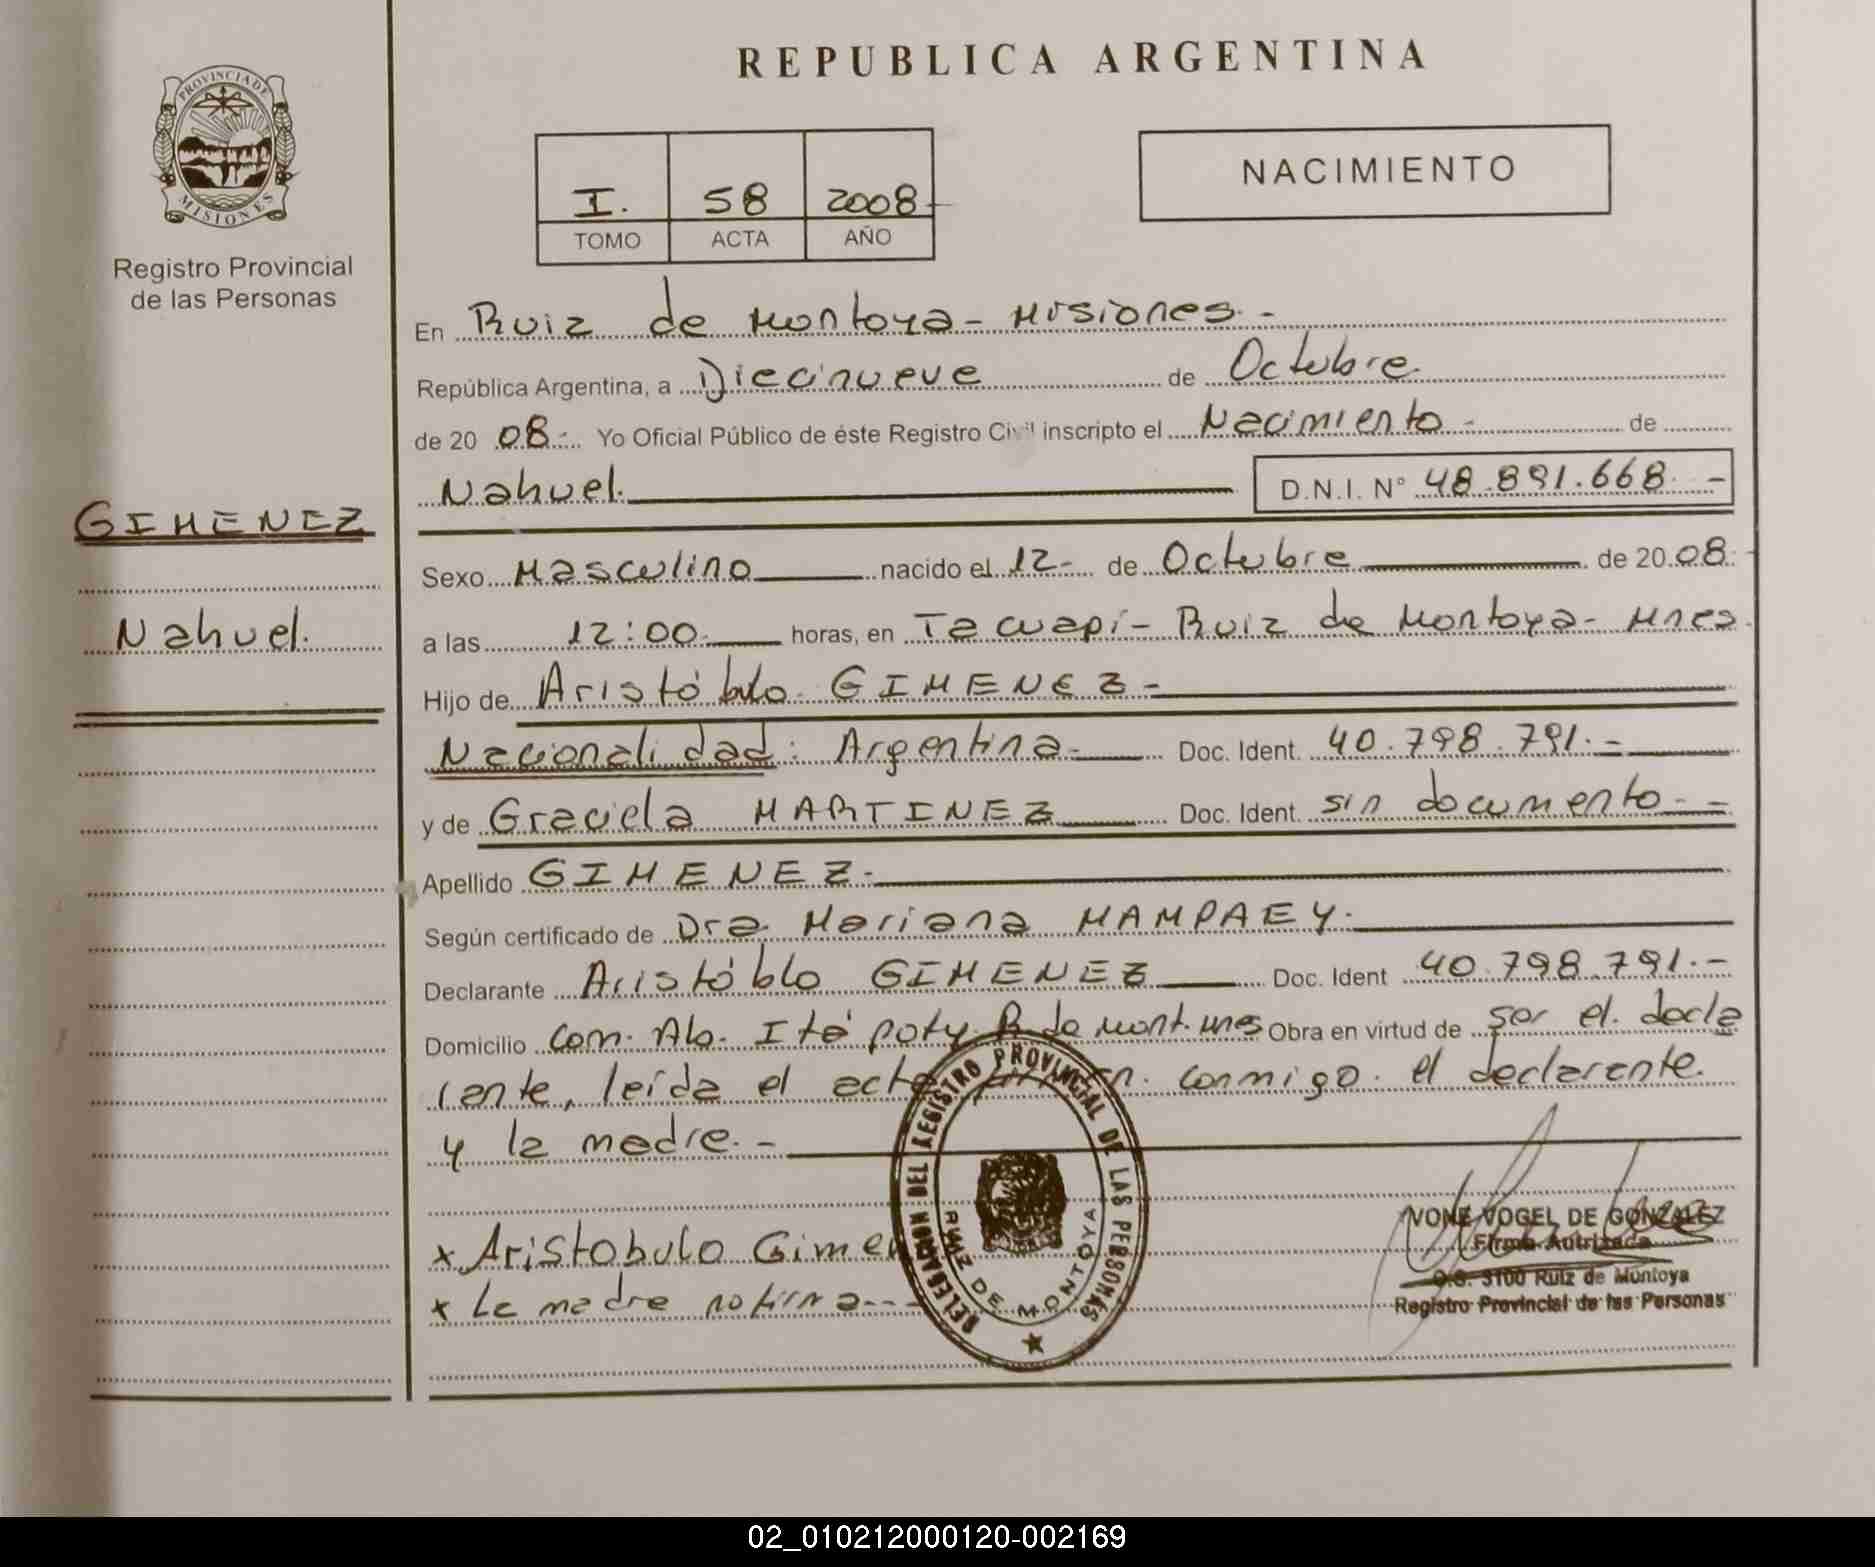 PROVINCIA DE
MISIONES
Registro Provincial
de las Personas
GIMENEZ
Nahuel.
REPUBLICA ARGENTINA
I. 58 2008-
TOMO ACTA AÑO
NACIMIENTO
En Ruiz de Montoya - Misiones. -
República Argentina, a Diecinueve de Octubre.
de 20 08.- Yo Oficial Público de éste Registro Civil inscripto el Nacimiento - de
Nahuel. D.N.I. N° 48.891.668. -
Sexo Masculino nacido el 12- de Octubre de 20 08.-
a las 12:00 horas, en Tacuapí - Ruiz de Montoya - Mnes.
Hijo de Aristóbulo GIMENEZ -
Nacionalidad: Argentina - Doc. Ident. 40.798.791. -
y de Graciela MARTINEZ Doc. Ident. sin documento. -
Apellido GIMENEZ.
Según certificado de Dra Mariana MAMPAEY.
Declarante Aristóblo GIMENEZ Doc. Ident 40.798.791. -
Domicilio Com. Ab. Itá poty R. de Mont. Mnes Obra en virtud de ser el decla
rante, leída el acta firman conmigo. el declarante.
y la madre. -
x Aristobulo Gimen
x La madre no firma. - -
DELEGACION DEL REGISTRO PROVINCIAL DE LAS PERSONAS
RUIZ DE MONTOYA
IVONE VOGEL DE GONZALEZ
Firma Autrizada
O.S. 3100 Ruiz de Montoya
Registro Provincial de las Personas
02_010212000120-002169